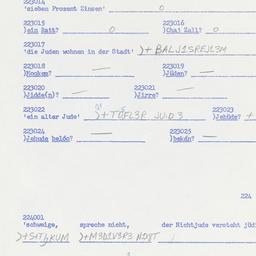 223014
'sieben Prozent Zinsen' O
223015 223016
)ein Rait? O )Chai Zall? O
223017
'die Juden wohnen in der Stadt' )+BALJ1SPEJ13M
223018 223019
)Mookem? — )Jüden? —
223020 223021
)Jidde(n)? — )Jirre? —
223022 223023
'ein alter Jude' )+TÖFL3R JUD3 )Jehüde? )+
223024 223025
)Jehude belóc? — )bekán? —
224
224001
'schweige, spreche nicht, der Nichtjude versteht jüdi